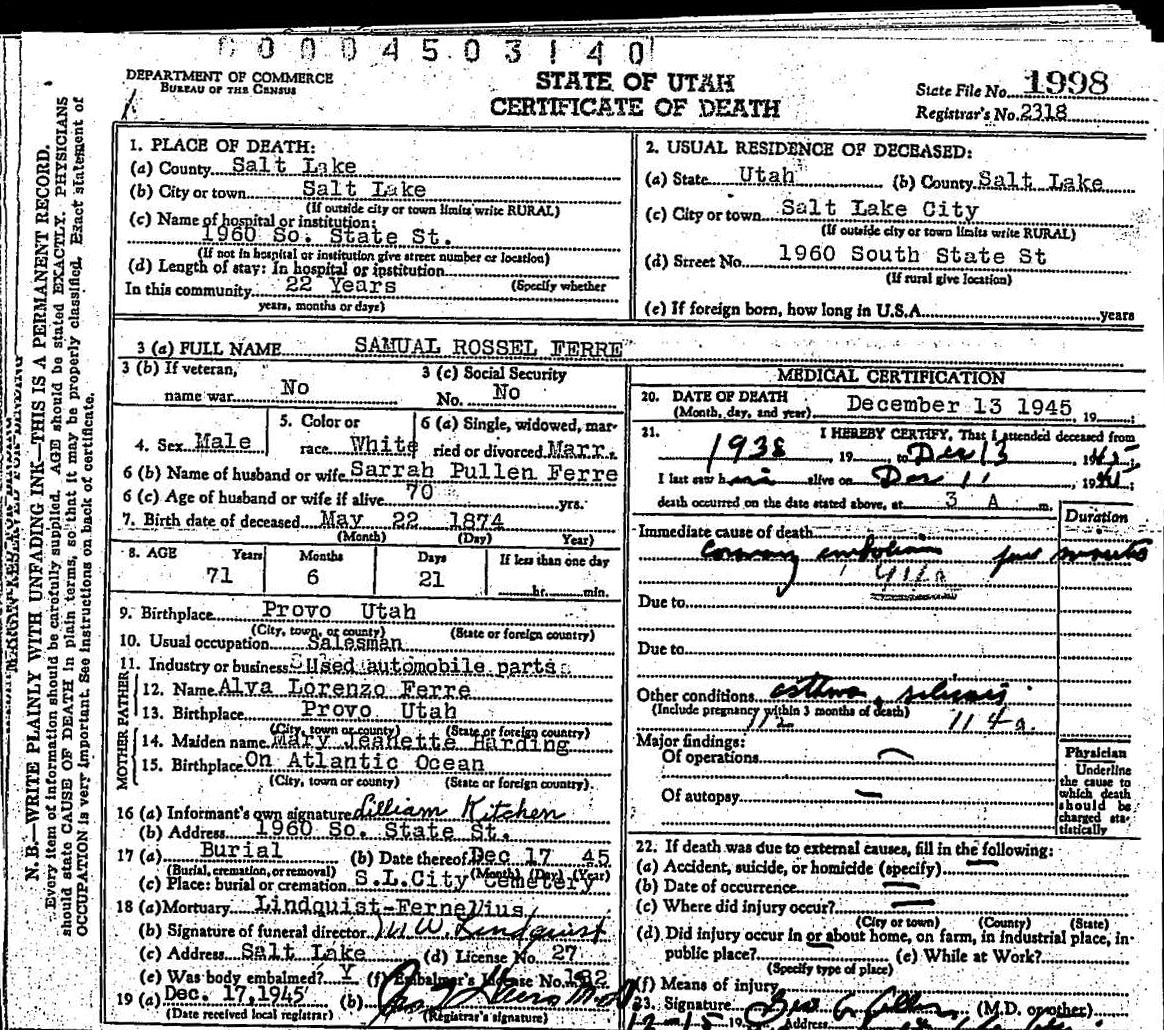 0 0 0 0 4 5 0 3 1 4 0
DEPARTMENT OF COMMERCE
BUREAU OF THE CENSUS
STATE OF UTAH
CERTIFICATE OF DEATH
State File No. 1998
Registrar's No. 2318
N. B.—WRITE PLAINLY WITH UNFADING INK—THIS IS A PERMANENT RECORD.
Every item of information should be carefully supplied. AGE should be stated EXACTLY. PHYSICIANS
should state CAUSE OF DEATH in plain terms, so that it may be properly classified. Exact statement of
OCCUPATION is very important. See instructions on back of certificate.
1. PLACE OF DEATH:
(a) County Salt Lake
(b) City or town Salt Lake
(If outside city or town limits write RURAL)
(c) Name of hospital or institution:
1960 So. State St.
(If not in hospital or institution give street number or location)
(d) Length of stay: In hospital or institution
In this community 22 Years (Specify whether
years, months or days)
2. USUAL RESIDENCE OF DECEASED:
(a) State Utah (b) County Salt Lake
(c) City or town Salt Lake City
(If outside city or town limits write RURAL)
(d) Street No. 1960 South State St
(If rural give location)
(e) If foreign born, how long in U.S.A. years
3 (a) FULL NAME SAMUAL ROSSEL FERRE
3 (b) If veteran,
name war No
3 (c) Social Security
No. No
4. Sex Male
5. Color or
race White
6 (a) Single, widowed, mar-
ried or divorced Marr.
6 (b) Name of husband or wife Sarrah Pullen Ferre
6 (c) Age of husband or wife if alive 70 yrs.
7. Birth date of deceased May 22 1874
(Month) (Day) Year)
8. AGE Years Months Days If less than one day
71 6 21 hr. min.
9. Birthplace Provo Utah
(City, town, or county) (State or foreign country)
10. Usual occupation Salesman
11. Industry or business Used automobile parts
FATHER
12. Name Alva Lorenzo Ferre
13. Birthplace Provo Utah
(City, town or county) (State or foreign country)
MOTHER
14. Maiden name Mary Jeanette Harding
15. Birthplace On Atlantic Ocean
(City, town or county) (State or foreign country).
16 (a) Informant's own signature Lilliam Kitchen
(b) Address 1960 So. State St.
17 (a) Burial (b) Date thereof Dec 17 45
(Burial, cremation, or removal) (Month) (Day) (Year)
(c) Place: burial or cremation S.L.City Cemetery
18 (a) Mortuary Lindquist-Fernelius
(b) Signature of funeral director W. Lindquist
(c) Address Salt Lake (d) License No. 27
(e) Was body embalmed? Y (f) Embalmer's License No. 182
19 (a) Dec. 17,1945 (b)
(Date received local registrar) (Registrar's signature)
MEDICAL CERTIFICATION
20. DATE OF DEATH
(Month, day, and year) December 13 1945, 19 ;
21. I HEREBY CERTIFY, That I attended deceased from
1938, 19 , to Dec 13, 1945
I last saw him alive on Dec 11, 1945;
death occurred on the date stated above, at 3 A m.
Duration
Immediate cause of death
Coronary embolism few minutes
Due to
Due to
Other conditions asthma, silicosis
(Include pregnancy within 3 months of death)
112 114a
Major findings:
Of operations
Of autopsy
Physician
Underline
the cause to
which death
should be
charged sta-
tistically
22. If death was due to external causes, fill in the following:
(a) Accident, suicide, or homicide (specify)
(b) Date of occurrence
(c) Where did injury occur?
(City or town) (County) (State)
(d) Did injury occur in or about home, on farm, in industrial place, in
public place? (e) While at Work?
(Specify type of place)
(f) Means of injury
23. Signature (M.D. or other)
12-15 19 Address